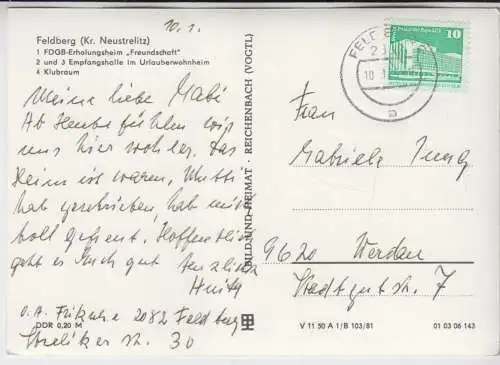 10.1.
Feldberg (Kr. Neustrelitz)
1 FDGB-Erholungsheim „Freundschaft"
2 und 3 Empfangshalle im Urlauberwohnheim
4 Klubraum
Meine liebe Gabi
Ab Heute fühlen wir
uns hier wohler. Das
Heim ist warm, Mutti
hab geschrieben, hab mich
toll gefreut. Hoffentlich
geht es Euch gut
2082 Feldberg
Strelitzer str. 30
DDR 0,20 M
BILD UND HEIMAT · REICHENBACH (VOGTL)
10
Frau
Gabriele Jung
9620 Werdau
Stadtgutstr. 7
V 11 50 A 1/B 103/81
01 03 06 143